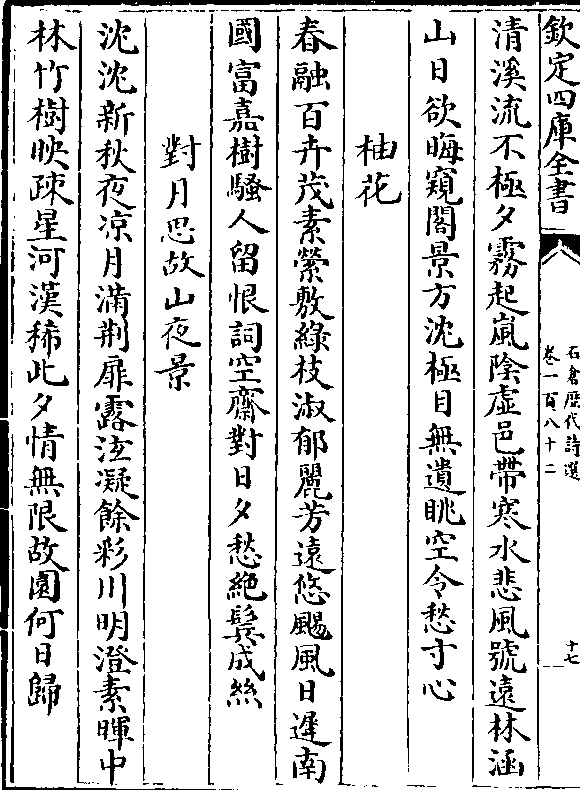 欽定四庫全書
石倉歴代詩選
卷一百八十二
十七
清溪流不極夕霧起嵐陰虛邑帶寒水悲風號遠林涵
山日欲晦窺閣景方沈極目無遺眺空令愁寸心
柚花
春融百卉茂素縈敷綠枝淑郁麗芳遠悠颺風日遲南
國富嘉樹騷人留恨詞空齋對日夕愁絶鬂成絲
對月思故山夜景
沈沈新秋夜凉月滿荆扉露泫凝餘彩川明澄素暉中
林竹樹映疎星河漢稀此夕情無限故園何日歸